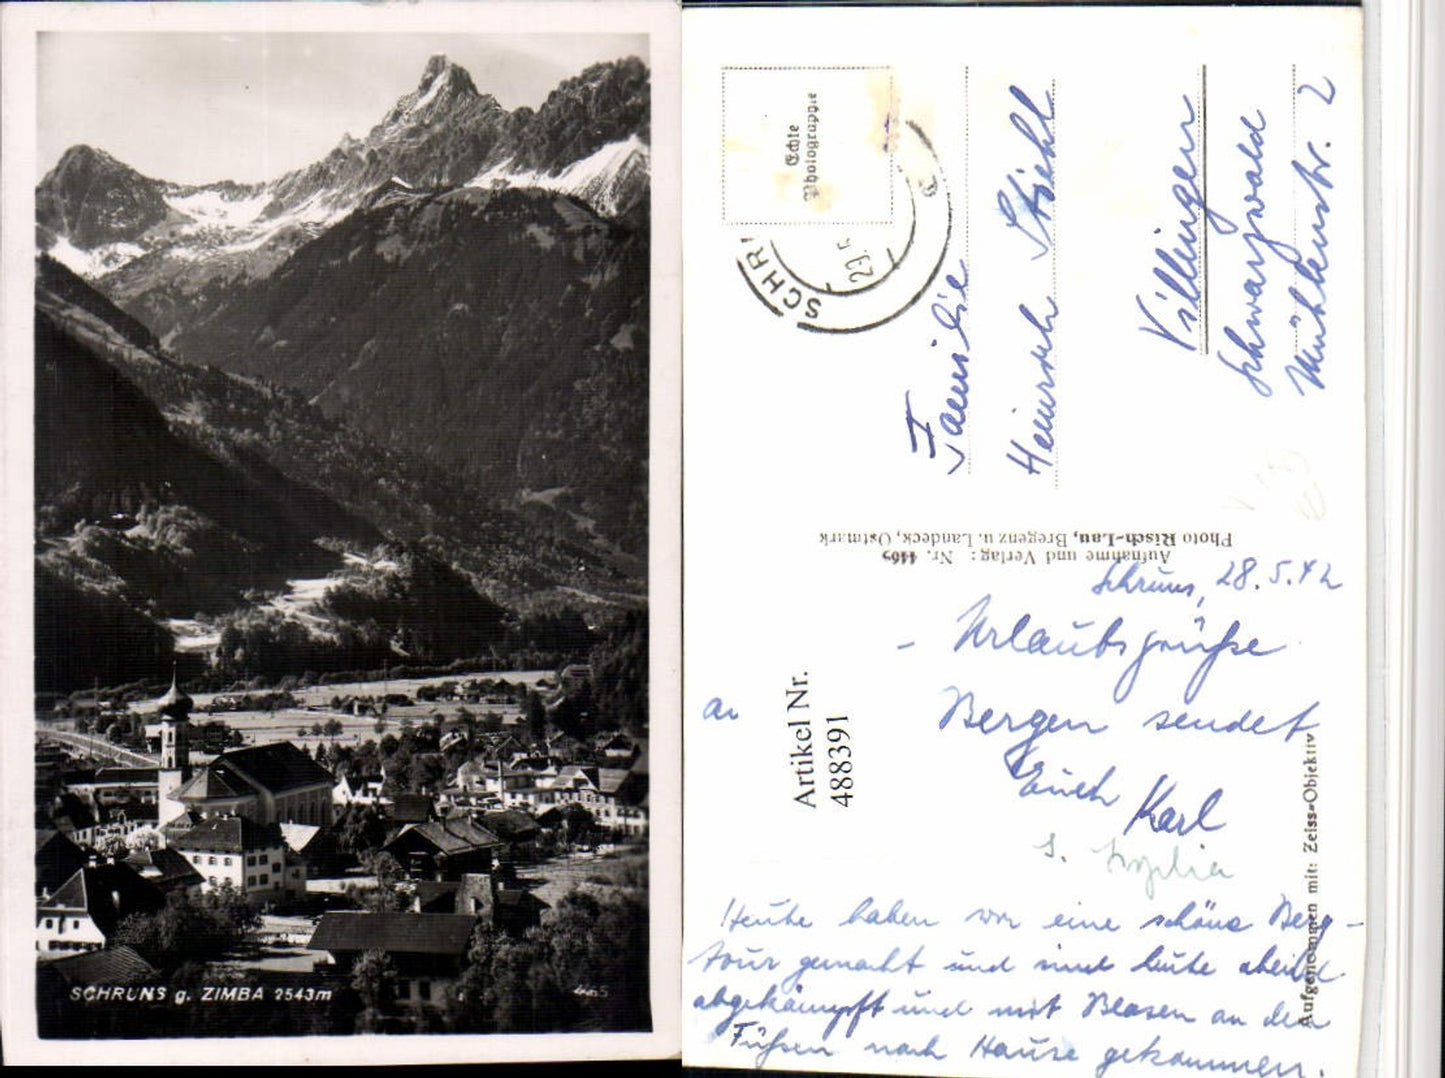 SCHRUNS g. ZIMBA 2543m
4465
Echte
Photographie
SCHR
23.
Familie
Heinrich Stiehl
Villingen
Schwarzwald
Mühlenstr. 2
Aufnahme und Verlag: Nr. 4465
Photo Risch-Lau, Bregenz u. Landeck, Ostmark
Artikel Nr.
488391
Aufgenommen mit: Zeiss-Objektiv
Schruns, 28.5.42
- Urlaubsgrüße
Bergen sendet
Euch Karl
Heute haben wir eine schöne Berg-
tour gemacht und sind heute abend
abgekämpft und mit Blasen an den
Füßen nach Hause gekommen.